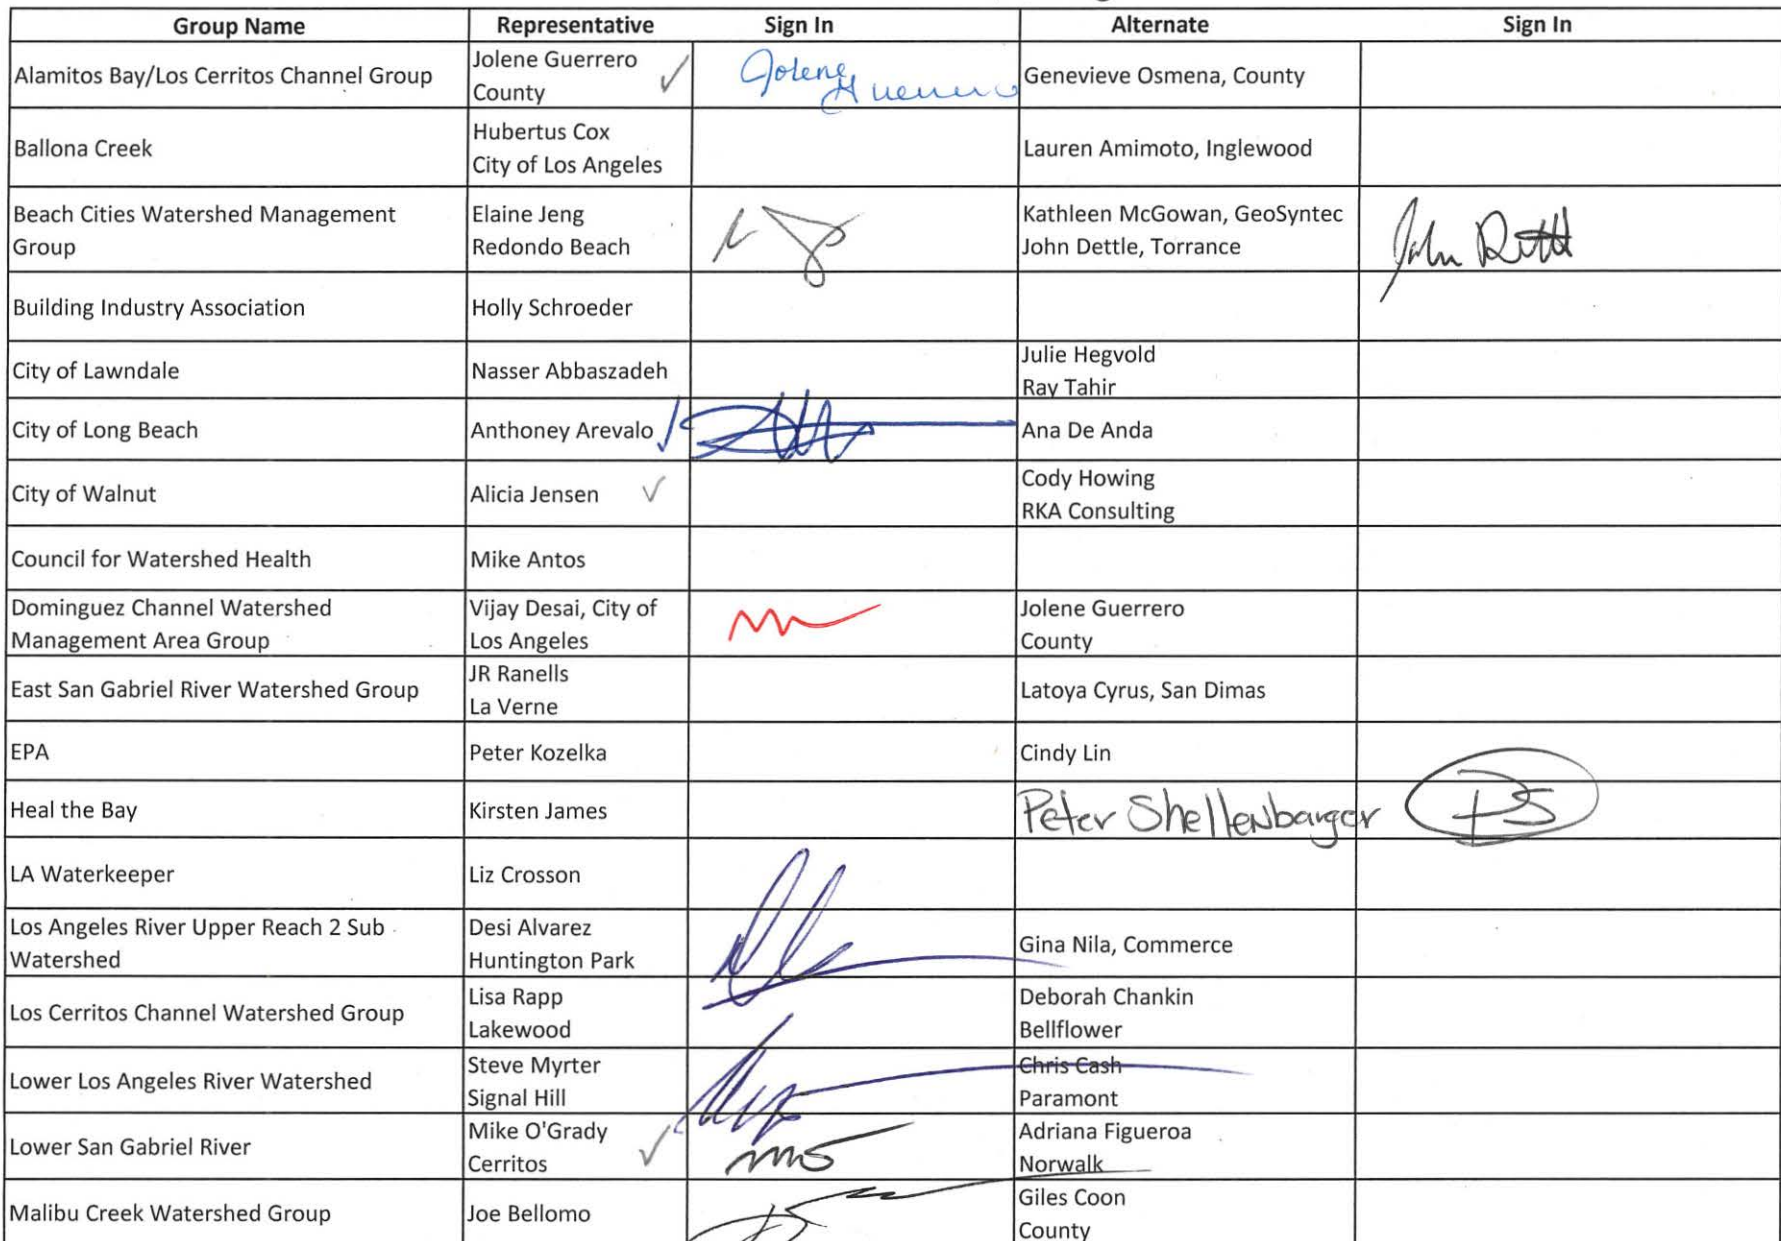 Group Name Representative Sign In Alternate Sign In
Alamitos Bay/Los Cerritos Channel Group Jolene Guerrero County ✓ Jolene Guerrero Genevieve Osmena, County
Ballona Creek Hubertus Cox City of Los Angeles Lauren Amimoto, Inglewood
Beach Cities Watershed Management Group Elaine Jeng Redondo Beach Kathleen McGowan, GeoSyntec John Dettle, Torrance
Building Industry Association Holly Schroeder
City of Lawndale Nasser Abbaszadeh Julie Hegvold Ray Tahir
City of Long Beach Anthoney Arevalo ✓ Ana De Anda
City of Walnut Alicia Jensen ✓ Cody Howing RKA Consulting
Council for Watershed Health Mike Antos
Dominguez Channel Watershed Management Area Group Vijay Desai, City of Los Angeles Jolene Guerrero County
East San Gabriel River Watershed Group JR Ranells La Verne Latoya Cyrus, San Dimas
EPA Peter Kozelka Cindy Lin
Heal the Bay Kirsten James Peter Shellenbarger PS
LA Waterkeeper Liz Crosson
Los Angeles River Upper Reach 2 Sub Watershed Desi Alvarez Huntington Park Gina Nila, Commerce
Los Cerritos Channel Watershed Group Lisa Rapp Lakewood Deborah Chankin Bellflower
Lower Los Angeles River Watershed Steve Myrter Signal Hill Chris Cash Paramont
Lower San Gabriel River Mike O'Grady Cerritos ✓ Adriana Figueroa Norwalk
Malibu Creek Watershed Group Joe Bellomo Giles Coon County